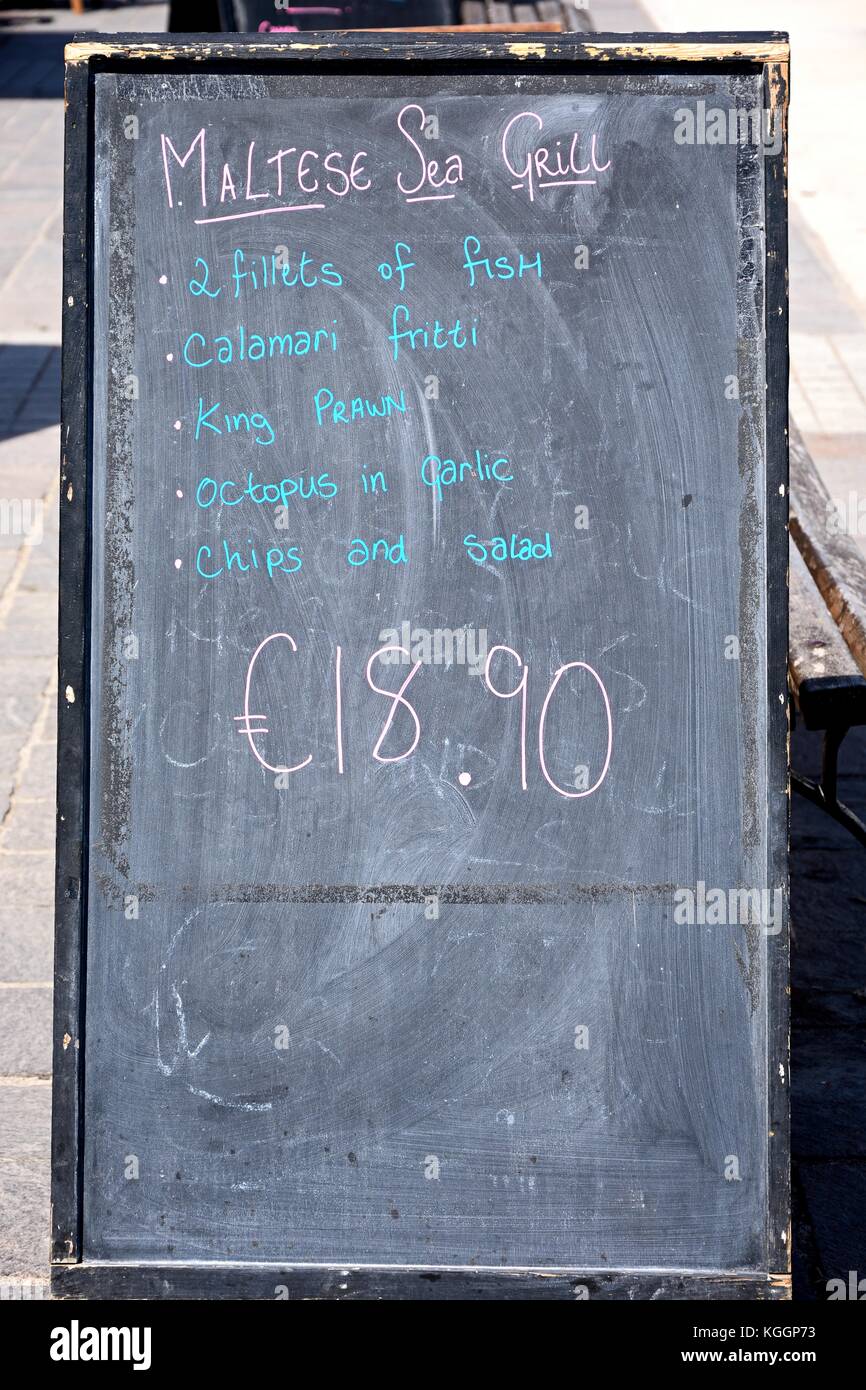 MALTESE Sea GRILL
• 2 fillets of fISH
• Calamari fritti
• King PRAWN
• Octopus in garlic
• Chips and salad
€18.90
alamy
Image ID: KGGP73
www.alamy.com